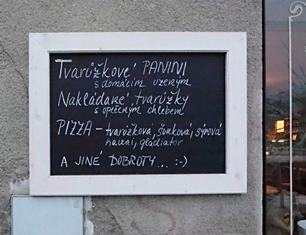 Tvarůžkové PANINI
s domácím uzeným
Nakládané tvarůžky
s opečeným chlebem
PIZZA - tvarůžková, šunková, sýrová
havai, gladiator
A JINÉ DOBROTY... :-)